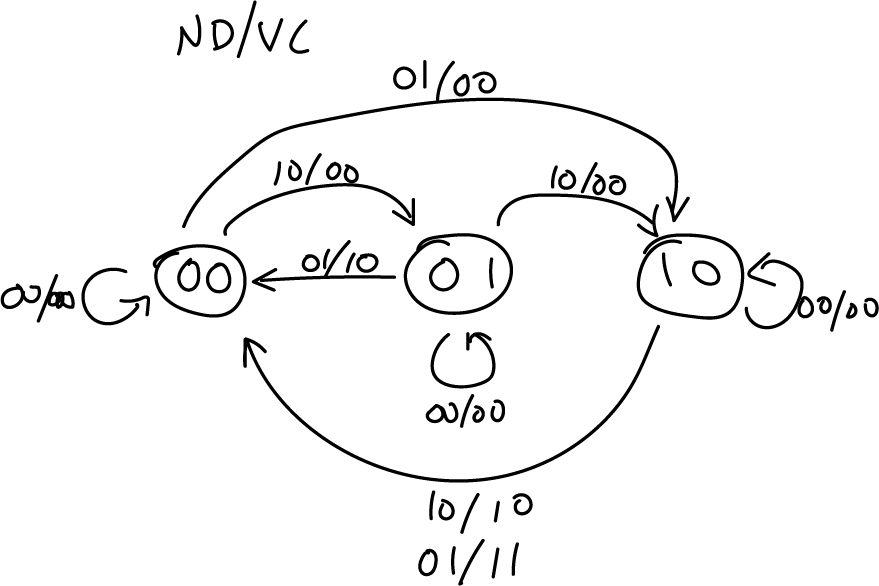 ND/VC
01/00
10/00
10/00
01/10
00
01
10
00/00
00/00
00/00
10/10
01/11